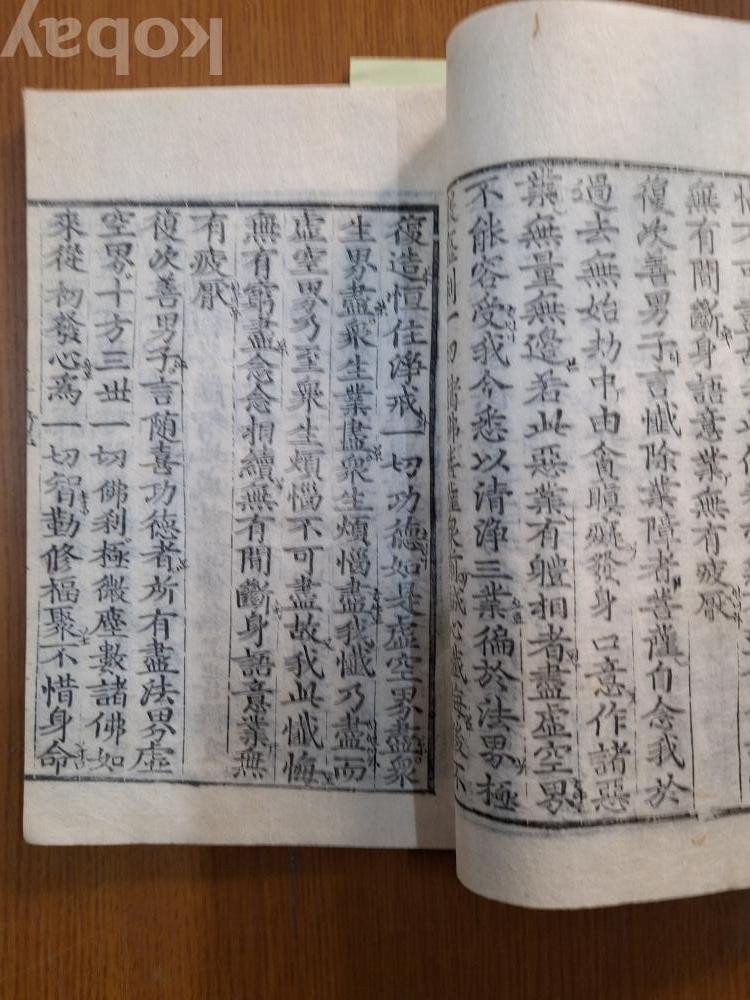 無有間斷身語意業無有疲厭
復次善男子言懺除業障者菩薩自念我於
過去無始劫中由貪瞋癡發身口意作諸惡
業無量無邊若此惡業有軆相者盡虛空界
不能容受我今悉以清淨三業徧於法界極
刹一切諸佛菩薩衆前誠心懺悔後不
復造恒住淨戒一切功德如是虛空界盡衆
生界盡衆生業盡衆生煩惱盡我懺乃盡而
虛空界乃至衆生煩惱不可盡故我此懺悔
無有窮盡念念相續無有間斷身語意業無
有疲厭
復次善男子言随喜功德者所有盡法界虛
空界十方三世一切佛刹極微塵數諸佛如
來從初發心為一切智勤修福聚不惜身命
kobay